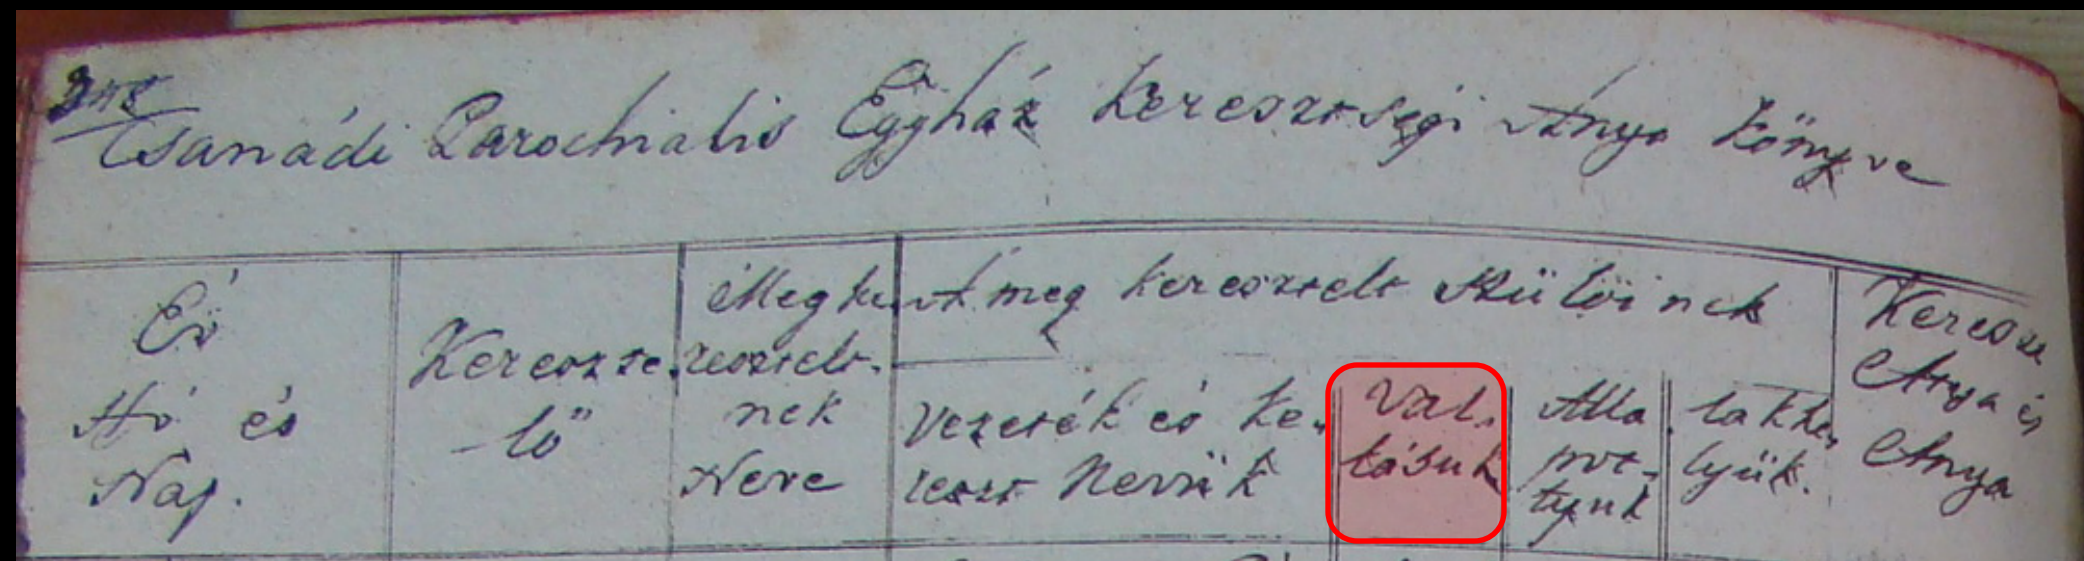 Csanádi Parochialis Egyház Keresztségi Anya Könyve
Év
Hó és
Nap.
Kereszte
lő
Megke
reszelt
nek
Neve
A meg keresztelt Szülőinek
Vezeték és Ke
reszt Nevük
Val
lásuk
Álla
pot
tyuk
lakhe
lyük.
Kereszt
Atya és
Anya